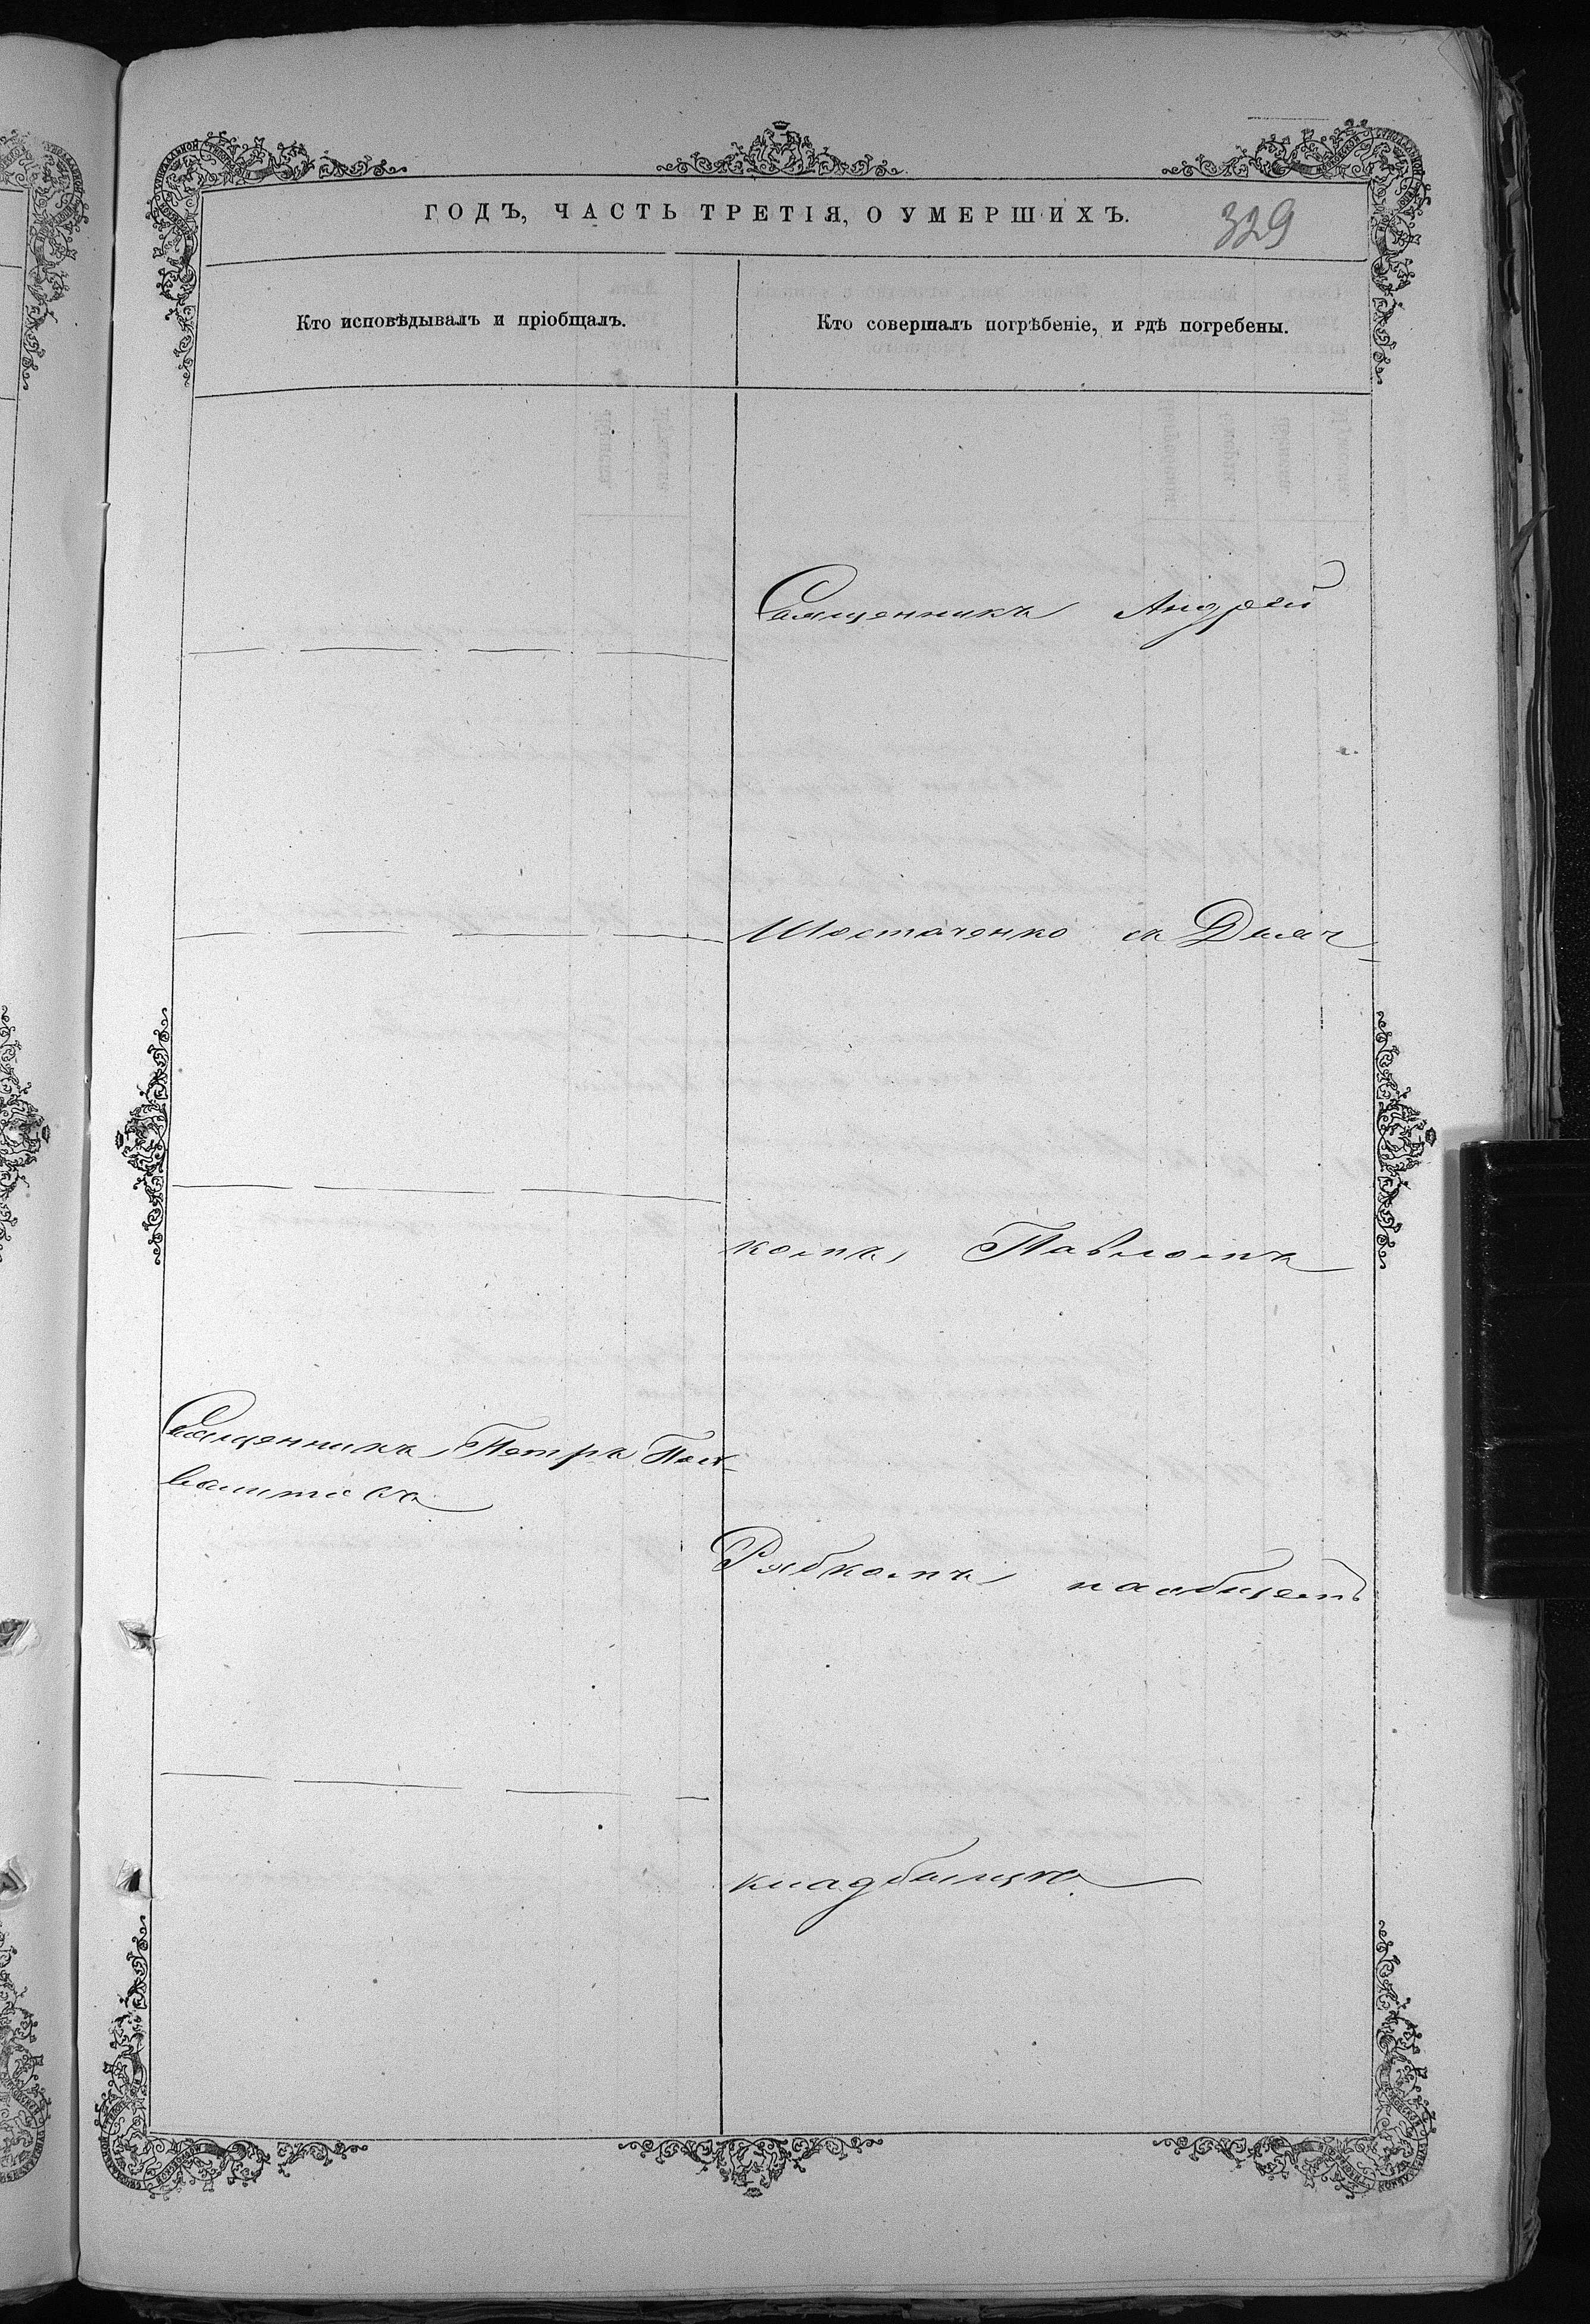 ГОДЪ, ЧАСТЬ ТРЕТІЯ, О УМЕРШИХЪ.
329
Кто исповѣдывалъ и пріобщалъ.
Кто совершалъ погрѣбеніе, и гдѣ погребены.
Священникъ Петръ
Священникъ Андрей
Шостаченко съ Дьяч-
комъ, Павломъ
Рябкомъ на общемъ
кладбищѣ